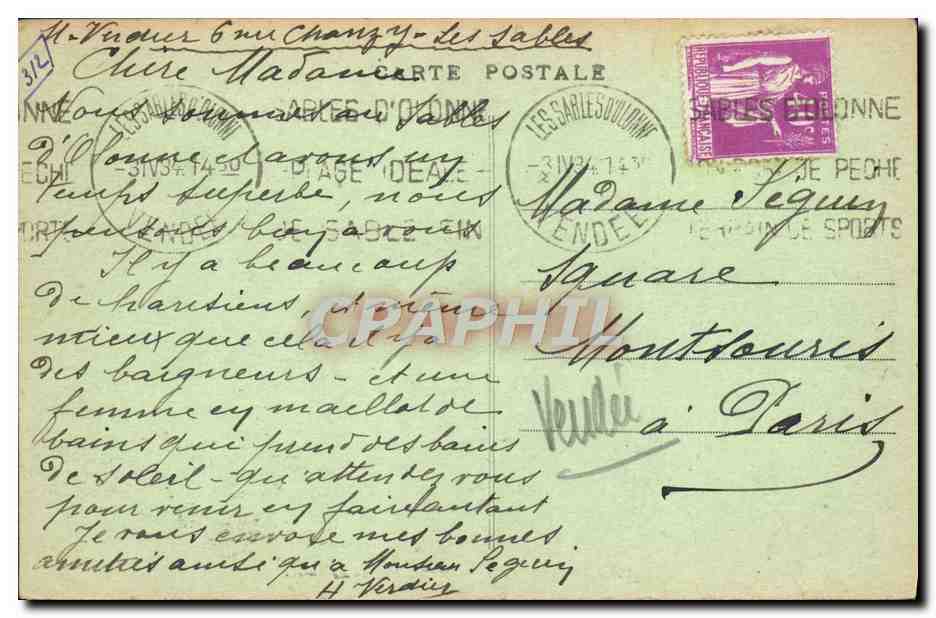 H. Verdier 6 rue Chanzy - Les Sables
312
Chère Madame
CARTE POSTALE
Nous sommes aux Sables
d'Olonne et avons un
temps superbe, nous
pensons bien à vous
Il y a beaucoup
de parisiens, et même
mieux que cela il y a
des baigneurs - et une
femme en maillot de
bains qui prend des bains
de soleil - qu'attendez vous
pour venir en faire autant
Je vous envoie mes bonnes
amitiés ainsi qu'à Monsieur Seguin
H Verdier
LES SABLES D'OLONNE
-3 IV 34 14 30
VENDEE
SABLES D'OLONNE
PLAGE IDEALE -
DE SABLE FIN
LES SABLES D'OLONNE
-3 IV 34 14 30
VENDEE
SABLES D'OLONNE
DE PECHE
TERRAIN DE SPORTS
ONNE
PECHE
ORTS
POSTES
40
REPUBLIQUE FRANÇAISE
Madame Séguin
Square
Montsouris
à Paris
Vendée
CPAPHIL